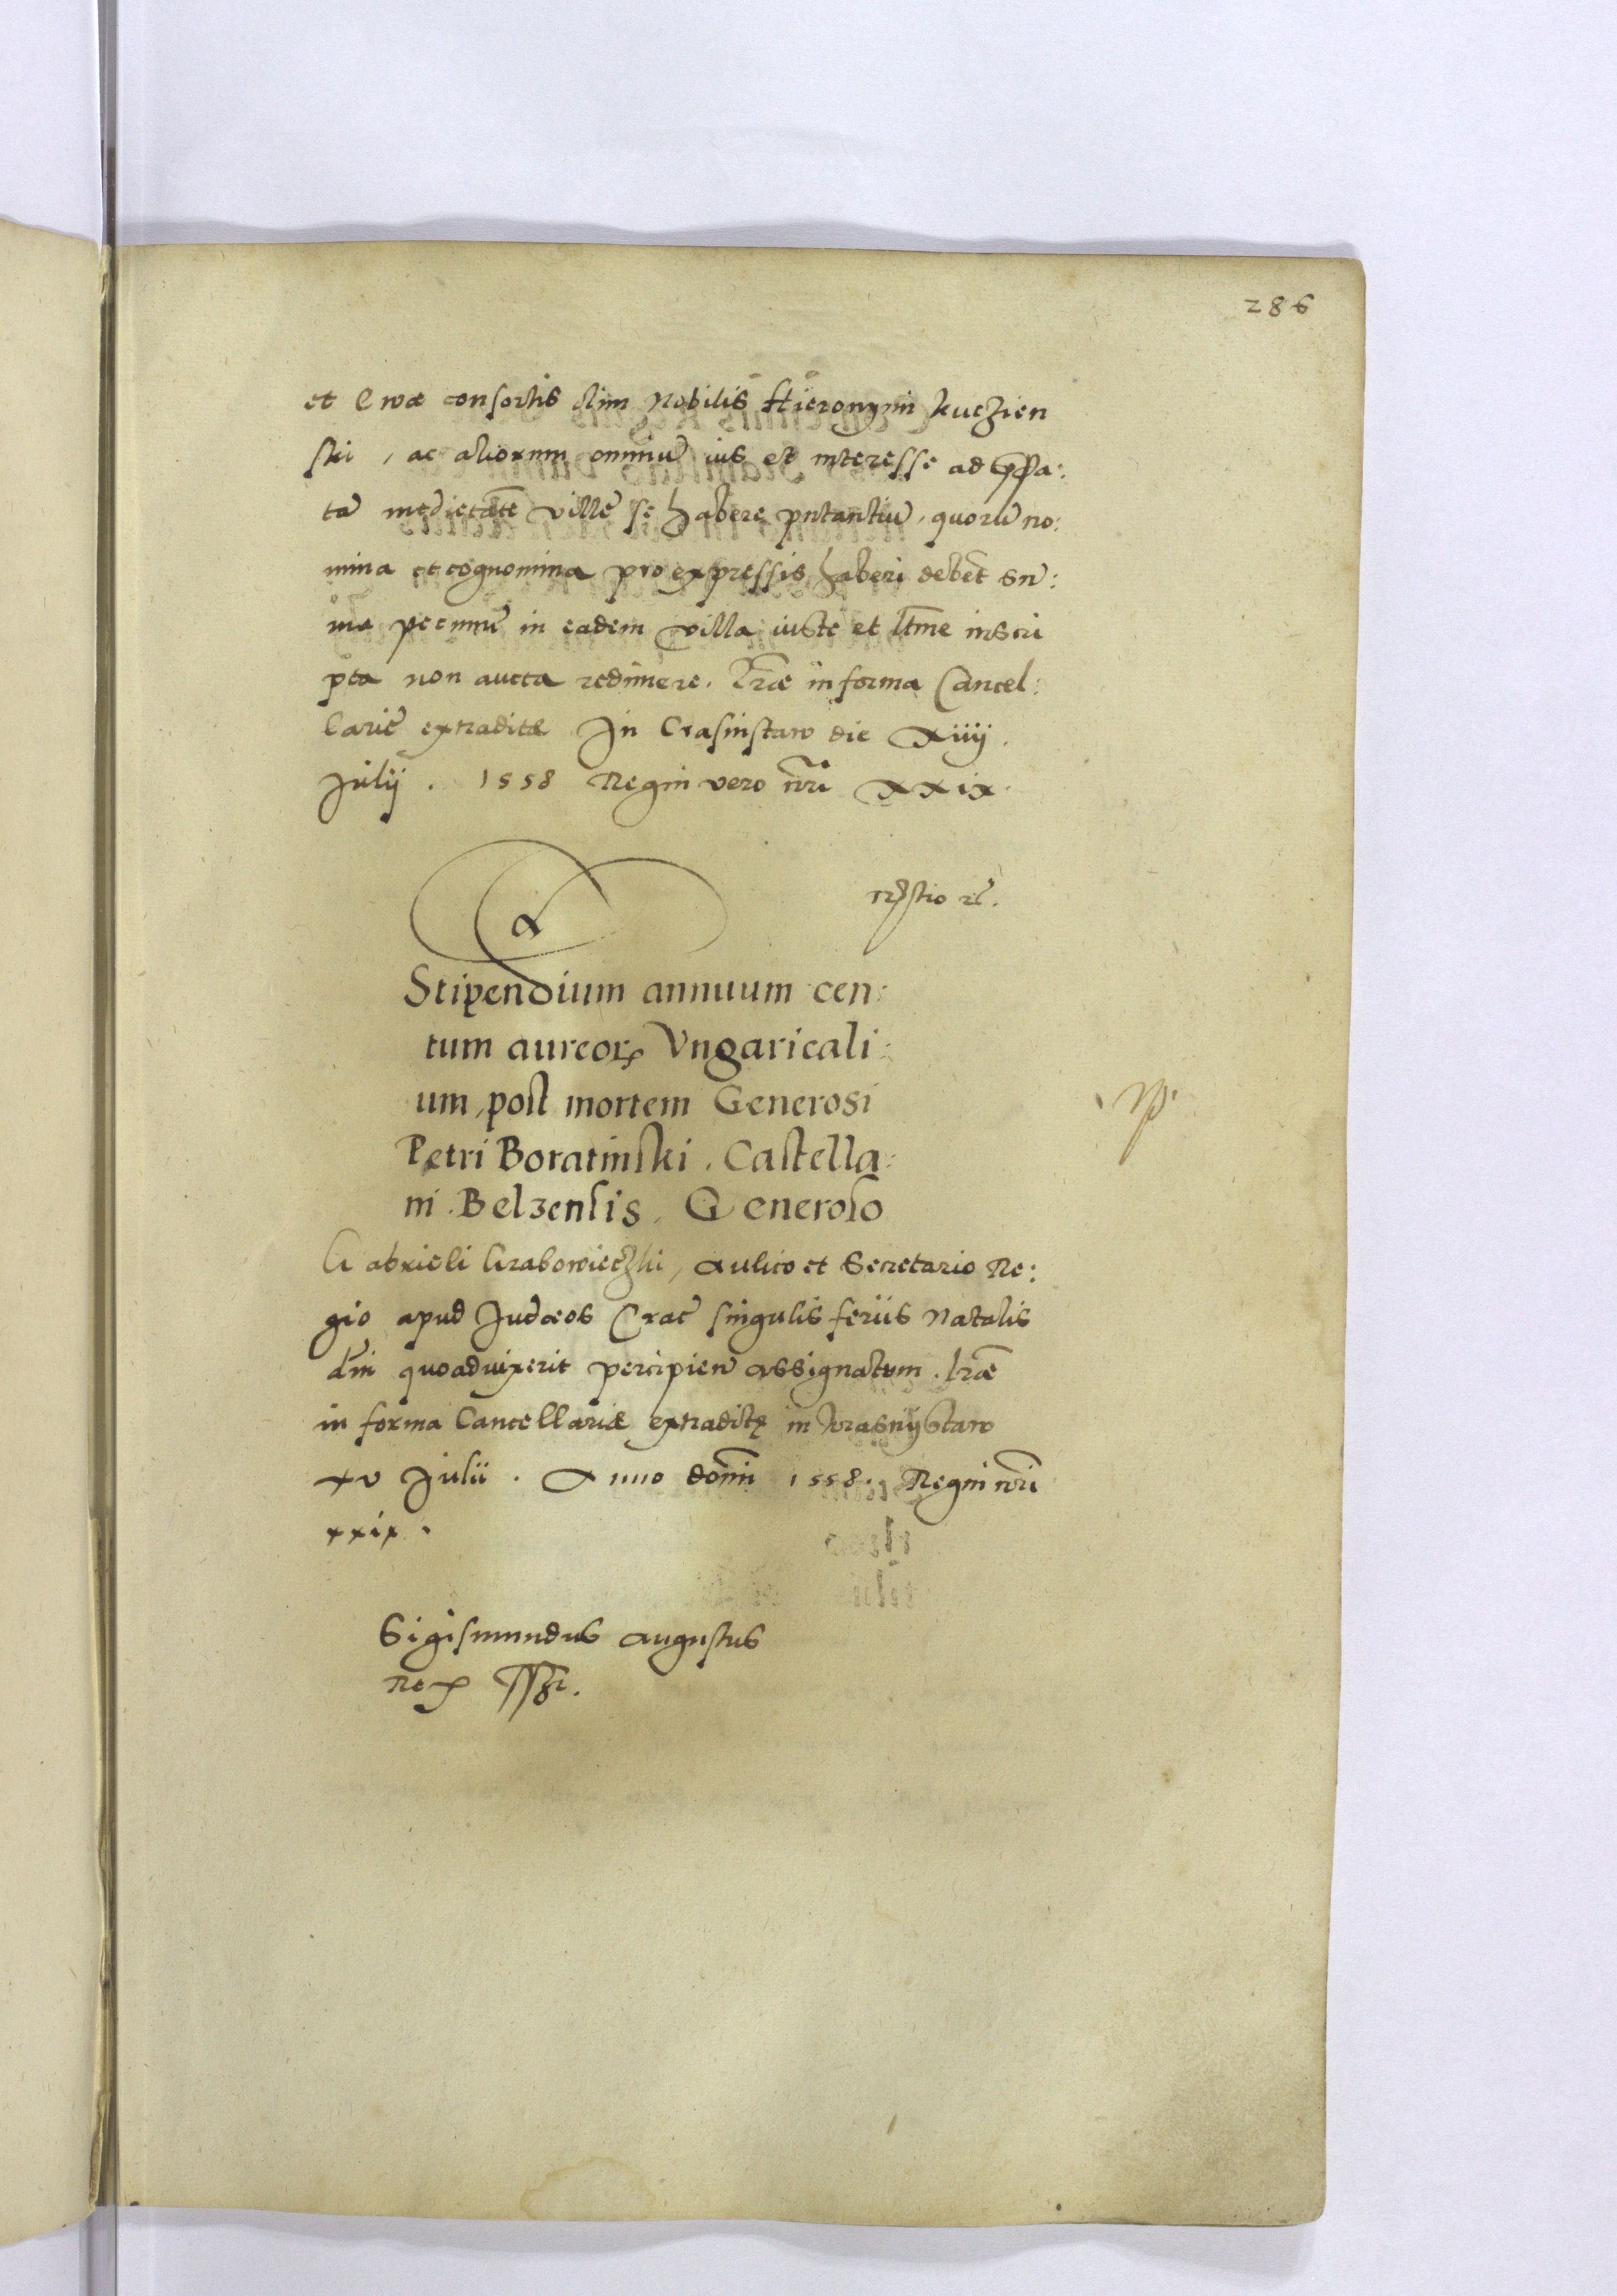 286
et Ewæ consortis olim Nobilis Hieronymi Kuczien
ski, ac aliorum omniũ ius et interesse ad
tã medietatẽ villẽ se habere prętantiũ, quorũ no:
mina et cognomina pro expressis haberi debent sũ:
ma pecuniẽ in eadem villa iuste et ltme inscri
pta non aucta redimere. Lræ in forma Cancel:
lariẽ extraditæ In Crasnistaw die Xiiij.
Julij. 1558 Regni vero nri XXix.
Stipendium annuum cen:
tum aureoꝝ Vngaricali:
um, post mortem Generosi
Petri Boratinski. Castella:
ni. Belzensis. Generoso
Gabrieli Grabowieczki, Aulico et Secretario Re:
gio apud Judæos Crac singulis feriis Natalis
dni quoadvixerit percipien assignatum. lræ
in forma Cancellariæ extraditę in Krasnÿstaw
xv Julii. Anno domi 1558. Regni nri
xxix.
Sigismundus Augustus
Rex